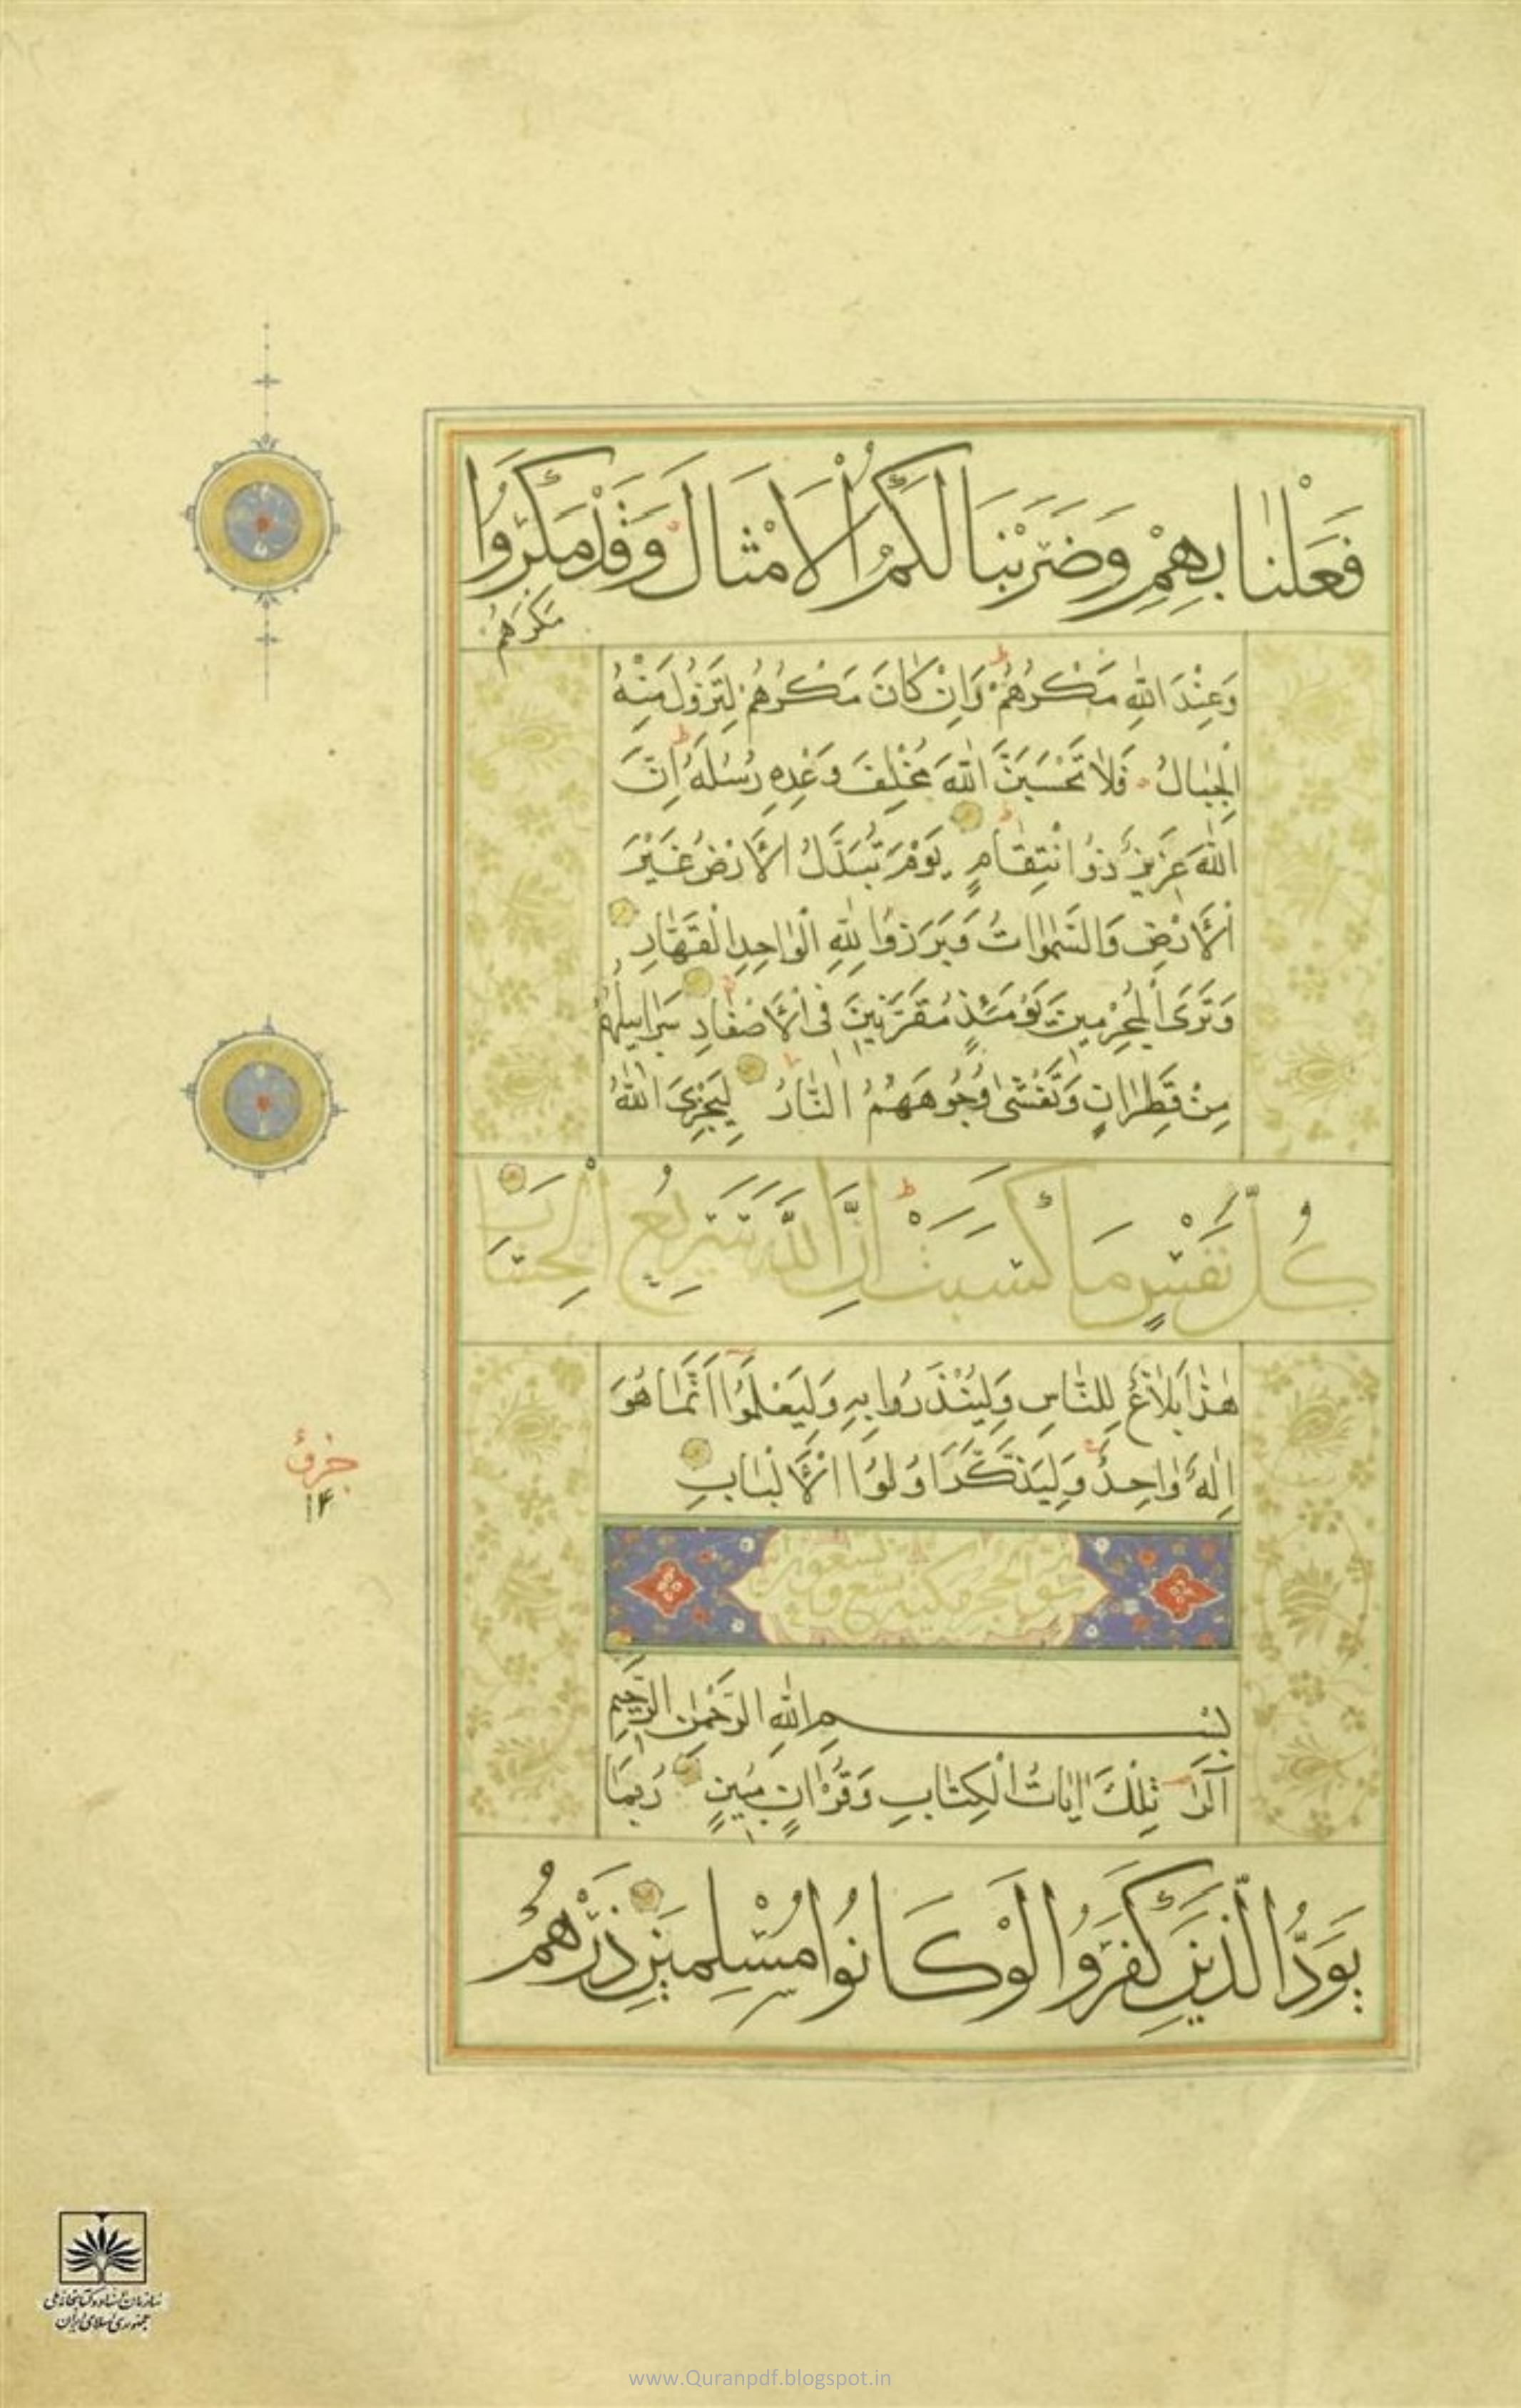 فَعَلْنَا بِهِمْ وَضَرَبْنَا لَكُمُ الْاَمْثَالَ وَقَدْ مَكَرُوا
مَكْرَهُمْ
وَعِنْدَ اللّٰهِ مَكْرُهُمْ وَاِنْ كَانَ مَكْرُهُمْ لِتَزُولَ مِنْهُ
الْجِبَالُ فَلَا تَحْسَبَنَّ اللّٰهَ مُخْلِفَ وَعْدِهِ رُسُلَهُ اِنَّ
اللّٰهَ عَزِيزٌ ذُو انْتِقَامٍ يَوْمَ تُبَدَّلُ الْاَرْضُ غَيْرَ
الْاَرْضِ وَالسَّمٰوَاتُ وَبَرَزُوا لِلّٰهِ الْوَاحِدِ الْقَهَّارِ
وَتَرَى الْمُجْرِمِينَ يَوْمَئِذٍ مُقَرَّنِينَ فِى الْاَصْفَادِ سَرَابِيلُهُمْ
مِنْ قَطِرَانٍ وَتَغْشٰى وُجُوهَهُمُ النَّارُ لِيَجْزِىَ اللّٰهُ
كُلَّ نَفْسٍ مَا كَسَبَتْ اِنَّ اللّٰهَ سَرِيعُ الْحِسَابِ
هٰذَا بَلَاغٌ لِلنَّاسِ وَلِيُنْذَرُوا بِهِ وَلِيَعْلَمُوا اَنَّمَا هُوَ
اِلٰهٌ وَاحِدٌ وَلِيَذَّكَّرَ اُولُوا الْاَلْبَابِ
بِسْمِ اللّٰهِ الرَّحْمٰنِ الرَّحِيمِ
الٓرٰ تِلْكَ اٰيَاتُ الْكِتَابِ وَقُرْاٰنٍ مُبِينٍ رُبَمَا
يَوَدُّ الَّذِينَ كَفَرُوا لَوْ كَانُوا مُسْلِمِينَ ذَرْهُمْ
۱۴
سازمان اسناد و کتابخانه ملی
جمهوری اسلامی ایران
www.Quranpdf.blogspot.in